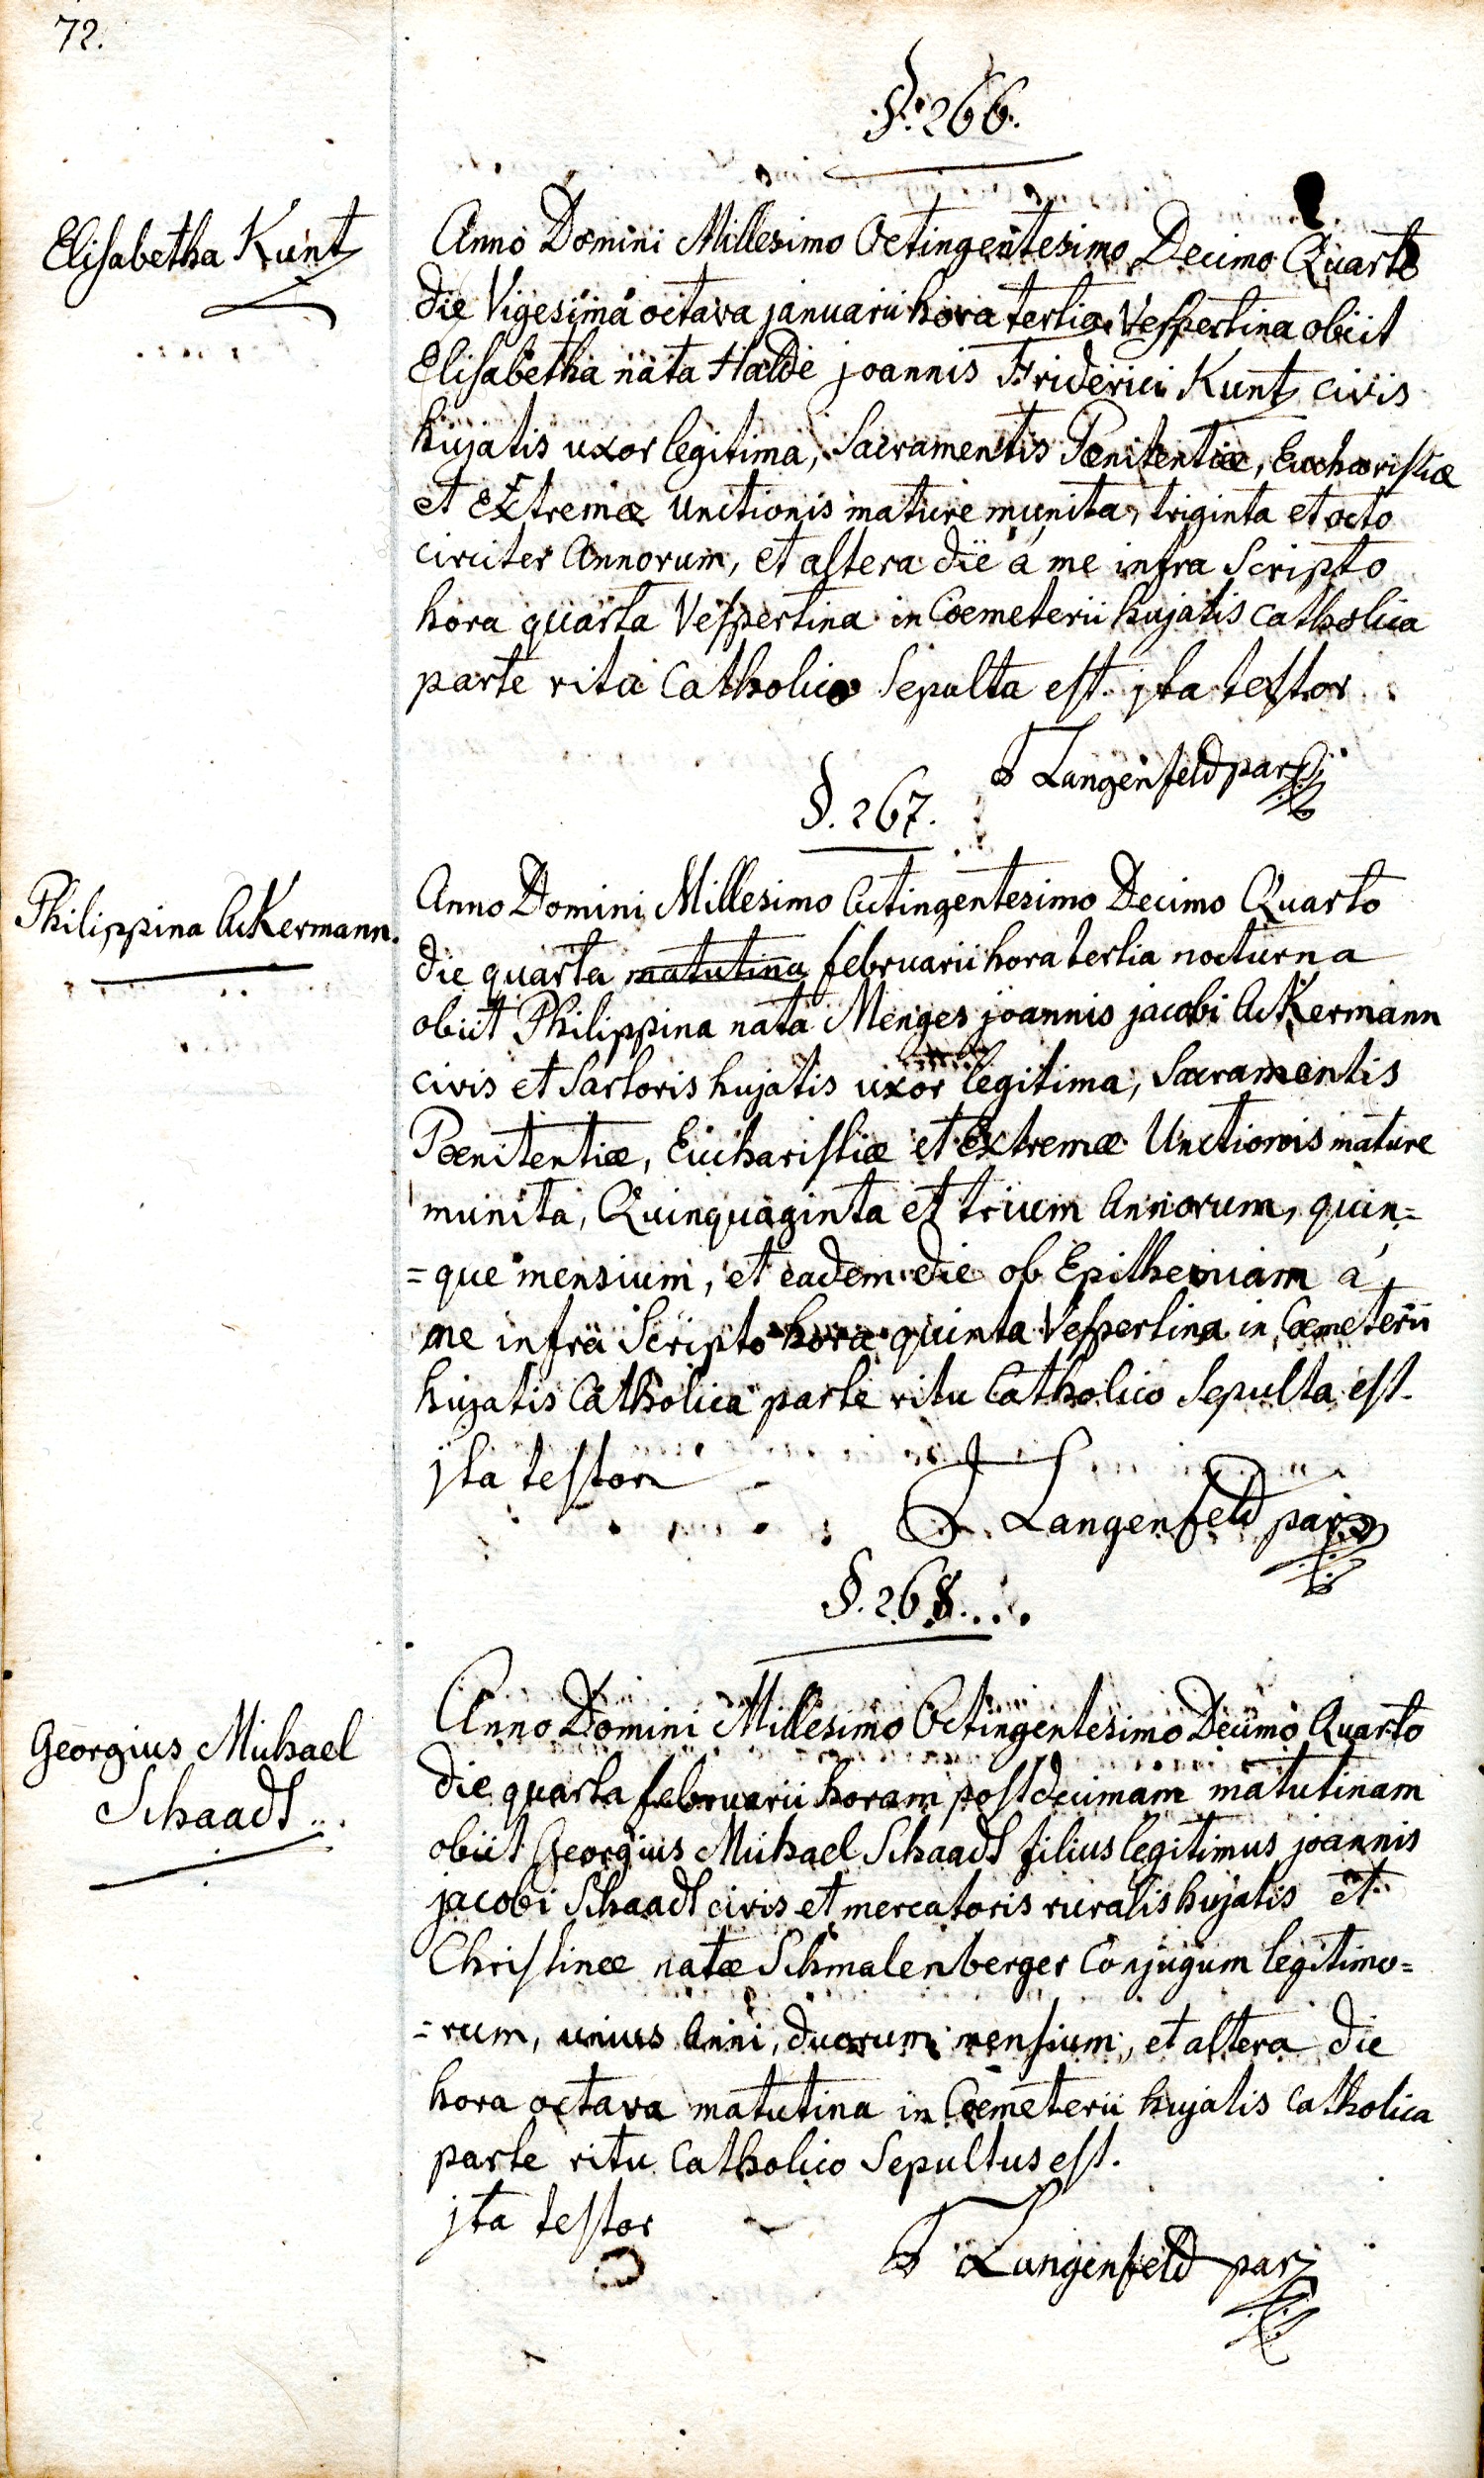 72.
§. 266.
Elisabetha Kuntz
Anno Domini Millesimo Octingentesimo Decimo Quarto
die Vigesima octava januarii hora tertia Vespertina obiit
Elisabetha nata Halde joannis Friderici Kuntz civis
hujatis uxor legitima, Sacramentis Pœnitentiæ, Eucharistiæ
et Extremæ Unctionis mature munita, triginta et octo
circiter Annorum, et altera die á me infra Scripto
hora quarta Vespertina in Cœmeterii hujatis catholica
parte ritu Catholico Sepulta est. jta testor
Langenfeld par
§. 267.
Philippina Ackermann.
Anno Domini Millesimo Octingentesimo Decimo Quarto
die quarta matutina februarii hora tertia nocturna
obiit Philippina nata Menges joannis jacobi Ackermann
civis et Sartoris hujatis uxor legitima, Sacramentis
Pœnitentiæ, Eucharistiæ et Extremæ Unctionis mature
munita, Quinquaginta et trium Annorum, quin=
=que mensium, et eadem die ob Epithemiam á
me infra Scripto hora quinta Vespertina in Cœmeterii
hujatis Catholica parte ritu Catholico Sepulta est.
jta testor
Langenfeld par
§. 268.
Georgius Michael
Schaadt
Anno Domini Millesimo Octingentesimo Decimo Quarto
die quarta februarii horam post decimam matutinam
obiit Georgius Michael Schaadt filius legitimus joannis
jacobi Schaadt civis et mercatoris ruralis hujatis et
Christinæ natæ Schmalenberger Conjugum legitimo=
=rum, unius Anni, duorum mensium, et altera die
hora octava matutina in Cœmeterii hujatis Catholica
parte ritu Catholico Sepultus est.
jta testor
Langenfeld par